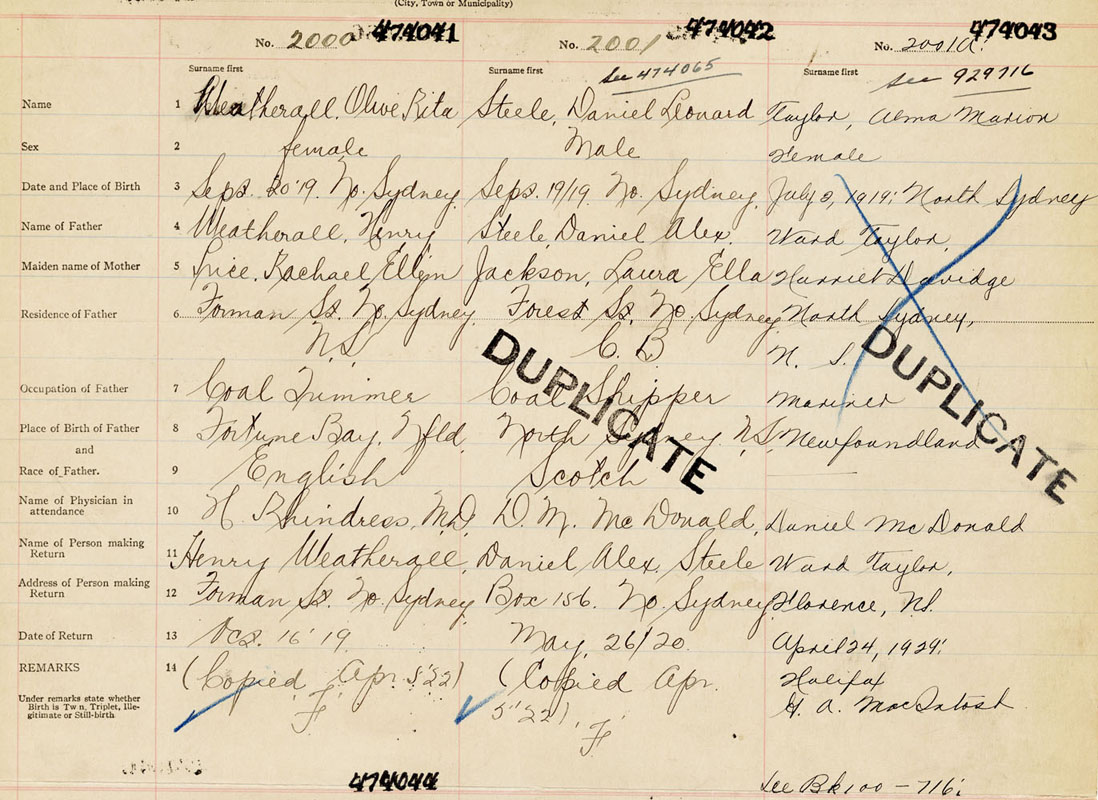 (City, Town or Municipality)
474041 474042 474043
No. 2000 No. 2001 No. 2001a.
Surname first Surname first See 474065 Surname first see 929716
Name 1 Weatherall, Olive Rita Steele, Daniel Leonard Taylor, Alma Marion
Sex 2 female Male Female
Date and Place of Birth 3 Sept. 20'19. No. Sydney Sept. 19/19 No. Sydney July 8, 1919; North Sydney
Name of Father 4 Weatherall, Henry Steele, Daniel Alex. Ward Taylor
Maiden name of Mother 5 Rachael Ellen Jackson, Laura Ella Harriet
Residence of Father 6 Forman St. No. Sydney Forest St. No. Sydney North Sydney,
N.S C. B N. S.
DUPLICATE DUPLICATE
Occupation of Father 7 Coal Trimmer Coal Shipper Mariner
Place of Birth of Father 8 Fortune Bay, Nfld. North Sydney N.S. Newfoundland
and
Race of Father. 9 English Scotch
Name of Physician in
attendance 10 H. Rhindress, MD D. M. McDonald, Daniel McDonald
Name of Person making
Return 11 Henry Weatherall, Daniel Alex. Steele Ward Taylor,
Address of Person making
Return 12 Forman St. No. Sydney Box 156. No. Sydney Florence, NS.
Date of Return 13 Oct. 16'19 May, 26/20 April 24, 1929.
REMARKS 14 (Copied Apr. 5'22) (Copied Apr. Halifax
Under remarks state whether
Birth is Twin, Triplet, Ille-
gitimate or Still-birth F 5'22). F H. A. MacIntosh
474044 See Bk 100 - 716;